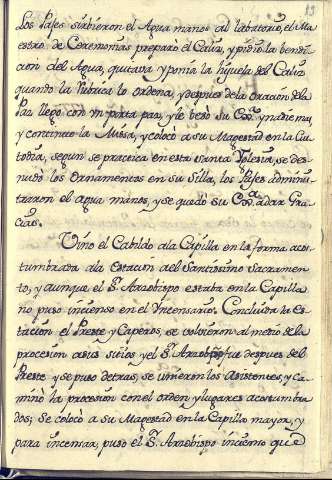 13
Los Pajes sirbieron el Agua manos al labatorio, el Ma
estro de Ceremonias preparó el Caliz, y pidio la bendi
cion del Agua, quitava y ponia la hijuela del Caliz
quando la Rubrica lo ordena, y despues de la Oracion de la
Paz llegó con un porta paz, y le besó su Exª. y nadie mas,
y continuó la Missa, y colocó a su Magestad en la Cus
todia, segun se practica en esta Santa Yglesia, se des
nudó los Ornamentos en su Silla, los Pajes adminis
traron el agua manos, y se quedo su Exª. a dar Gra
cias.
Vino el Cabildo a la Capilla en la forma acos
tumbrada a la estacion del Santissimo Sacramen
to, y aunque el Sr. Arzobispo estaba en la Capilla
no puso incienso en el Yncensario. Concluida la Es
tacion el Preste y Caperos, se volvieron al medio de la
procesion a sus sitios y el Sr. Arzobispo fue despues del
Preste y se puso detras, se unieron los Asistentes, y ca
minó la procesion con el orden y lugares acostumbra
dos; Se colocó a su Magestad en la Capilla mayor, y
para incensar, puso el Sr. Arzobispo incienso que